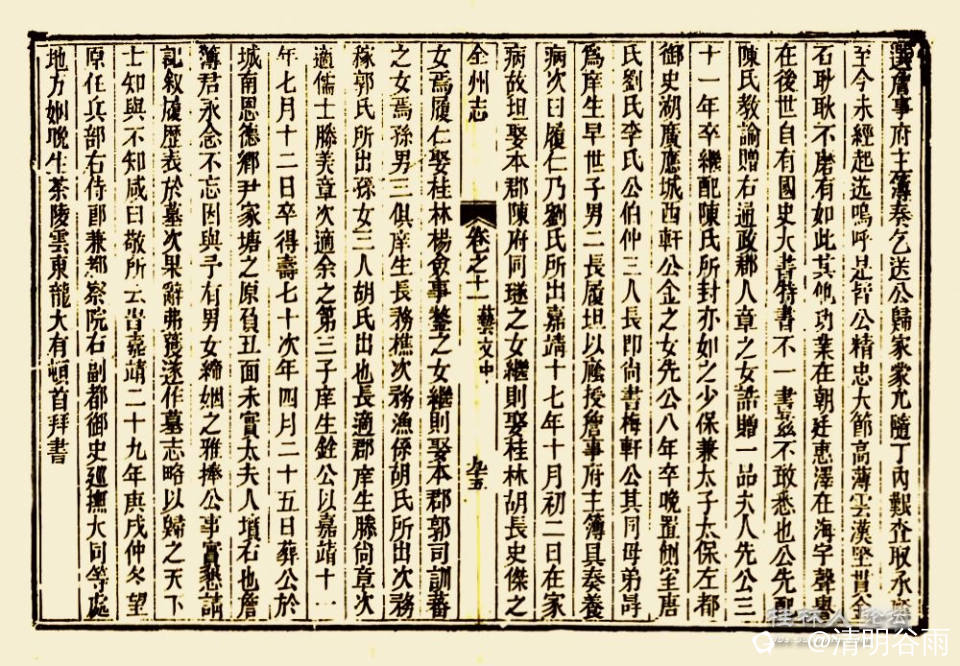 選詹事府主簿奏乞送公歸家蒙允隨丁內艱查取承應
至今未經起选嗚呼是皆公精忠大節高薄雲漢堅貫金
石耿耿不磨有如此其他功業在朝廷惠澤在海宇聲譽
在後世自有國史大書特書不一書茲不敢悉也公先配
陳氏教諭贈右通政郡人章之女誥贈一品夫人先公三
十一年卒繼配陳氏所封亦如之少保兼太子太保左都
御史湖廣應城西軒公金之女先公八年卒晚置側室唐
氏劉氏李氏公伯仲三人長即尚書梅軒公其同母弟尋
為庠生早世子男二長履坦以廕授詹事府主簿具奏養
病次曰履仁乃劉氏所出嘉靖十七年十月初二日在家
病故坦娶本郡陳府同璲之女繼則娶桂林胡長史傑之
全州志 卷之十一 藝文中 九十五
女焉履仁娶桂林楊僉事鏊之女繼則娶本郡郭司訓蕃
之女焉孫男三俱庠生長務樵次務漁係胡氏所出次務
稼郭氏所出孫女三人胡氏出也長適郡庠生滕尚章次
適儒士滕美章次適余之第三子庠生銓公以嘉靖十一
年七月十二日卒得壽七十次年四月二十五日葬公於
城南恩德鄉尹家塘之原負丑面未實太夫人墳右也詹
簿君永念不忘因與予有男女締姻之雅捧公事實懇請
記敘履歷表於墓次果辭弗獲遂作墓志略以歸之天下
士知與不知咸曰敬所云旹嘉靖二十九年庚戌仲冬望
原任兵部右侍郎兼都察院右副都御史巡撫大同等處
地方姻晚生茶陵雲東龍大有頓首拜書
桂林人論壇
@清明谷雨